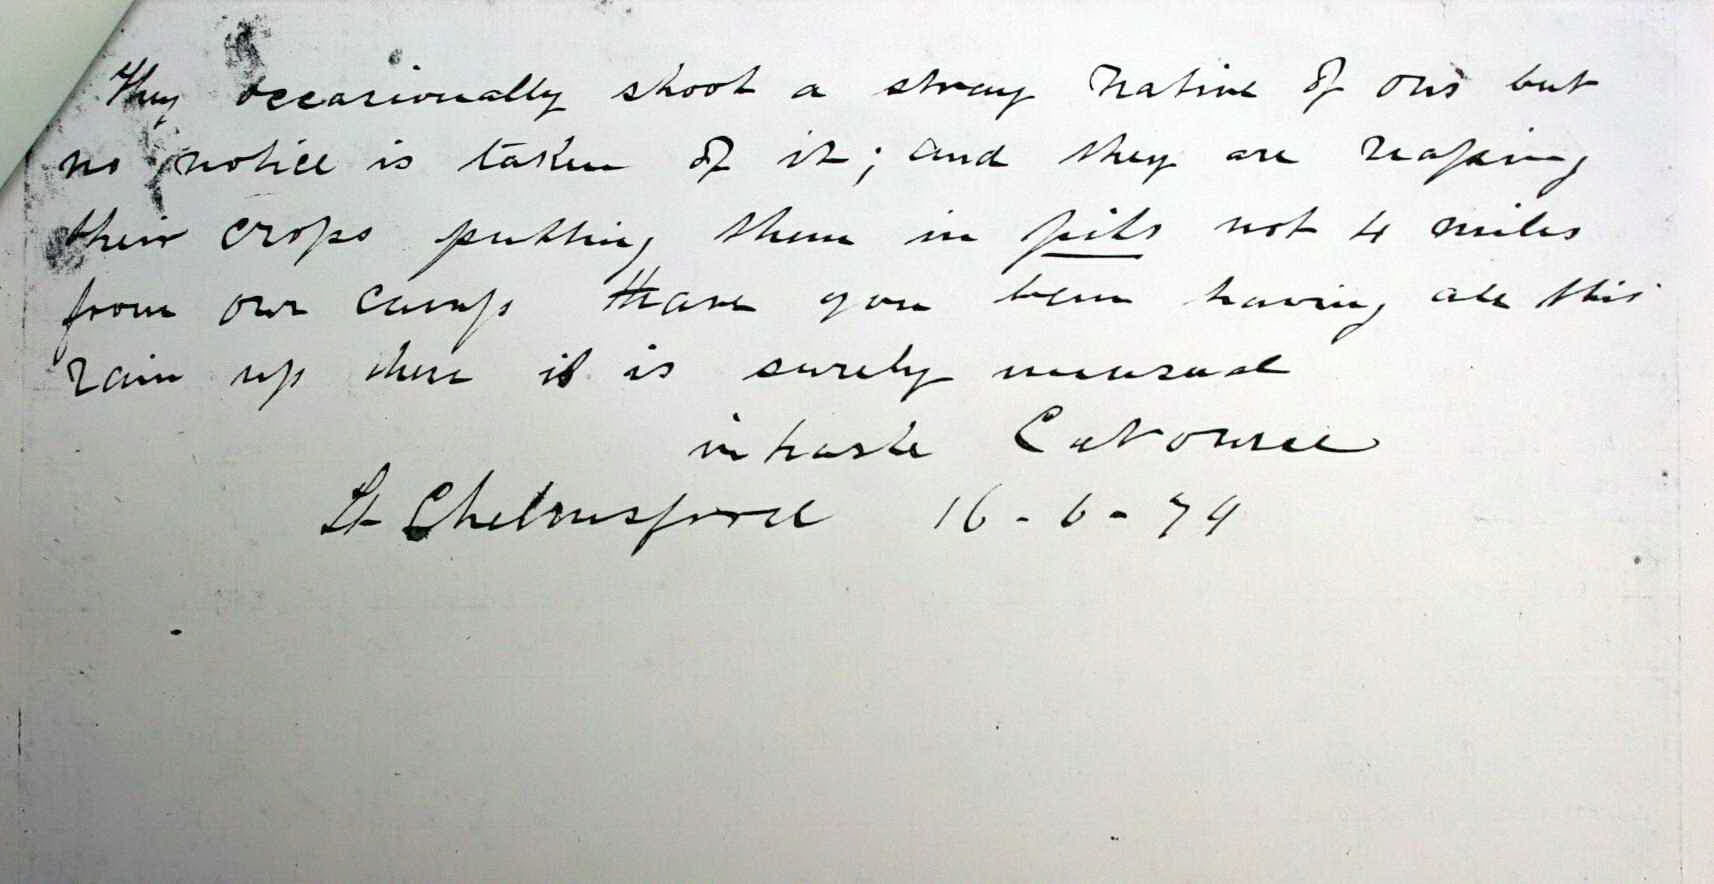 They occasionally shoot a stray native of ours but
no notice is taken of it; and they are reaping
their crops putting them in pits not 4 miles
from our camp Have you been having all this
rain up there it is surely unusual
in haste
Ft Chelmsford 16-6-79